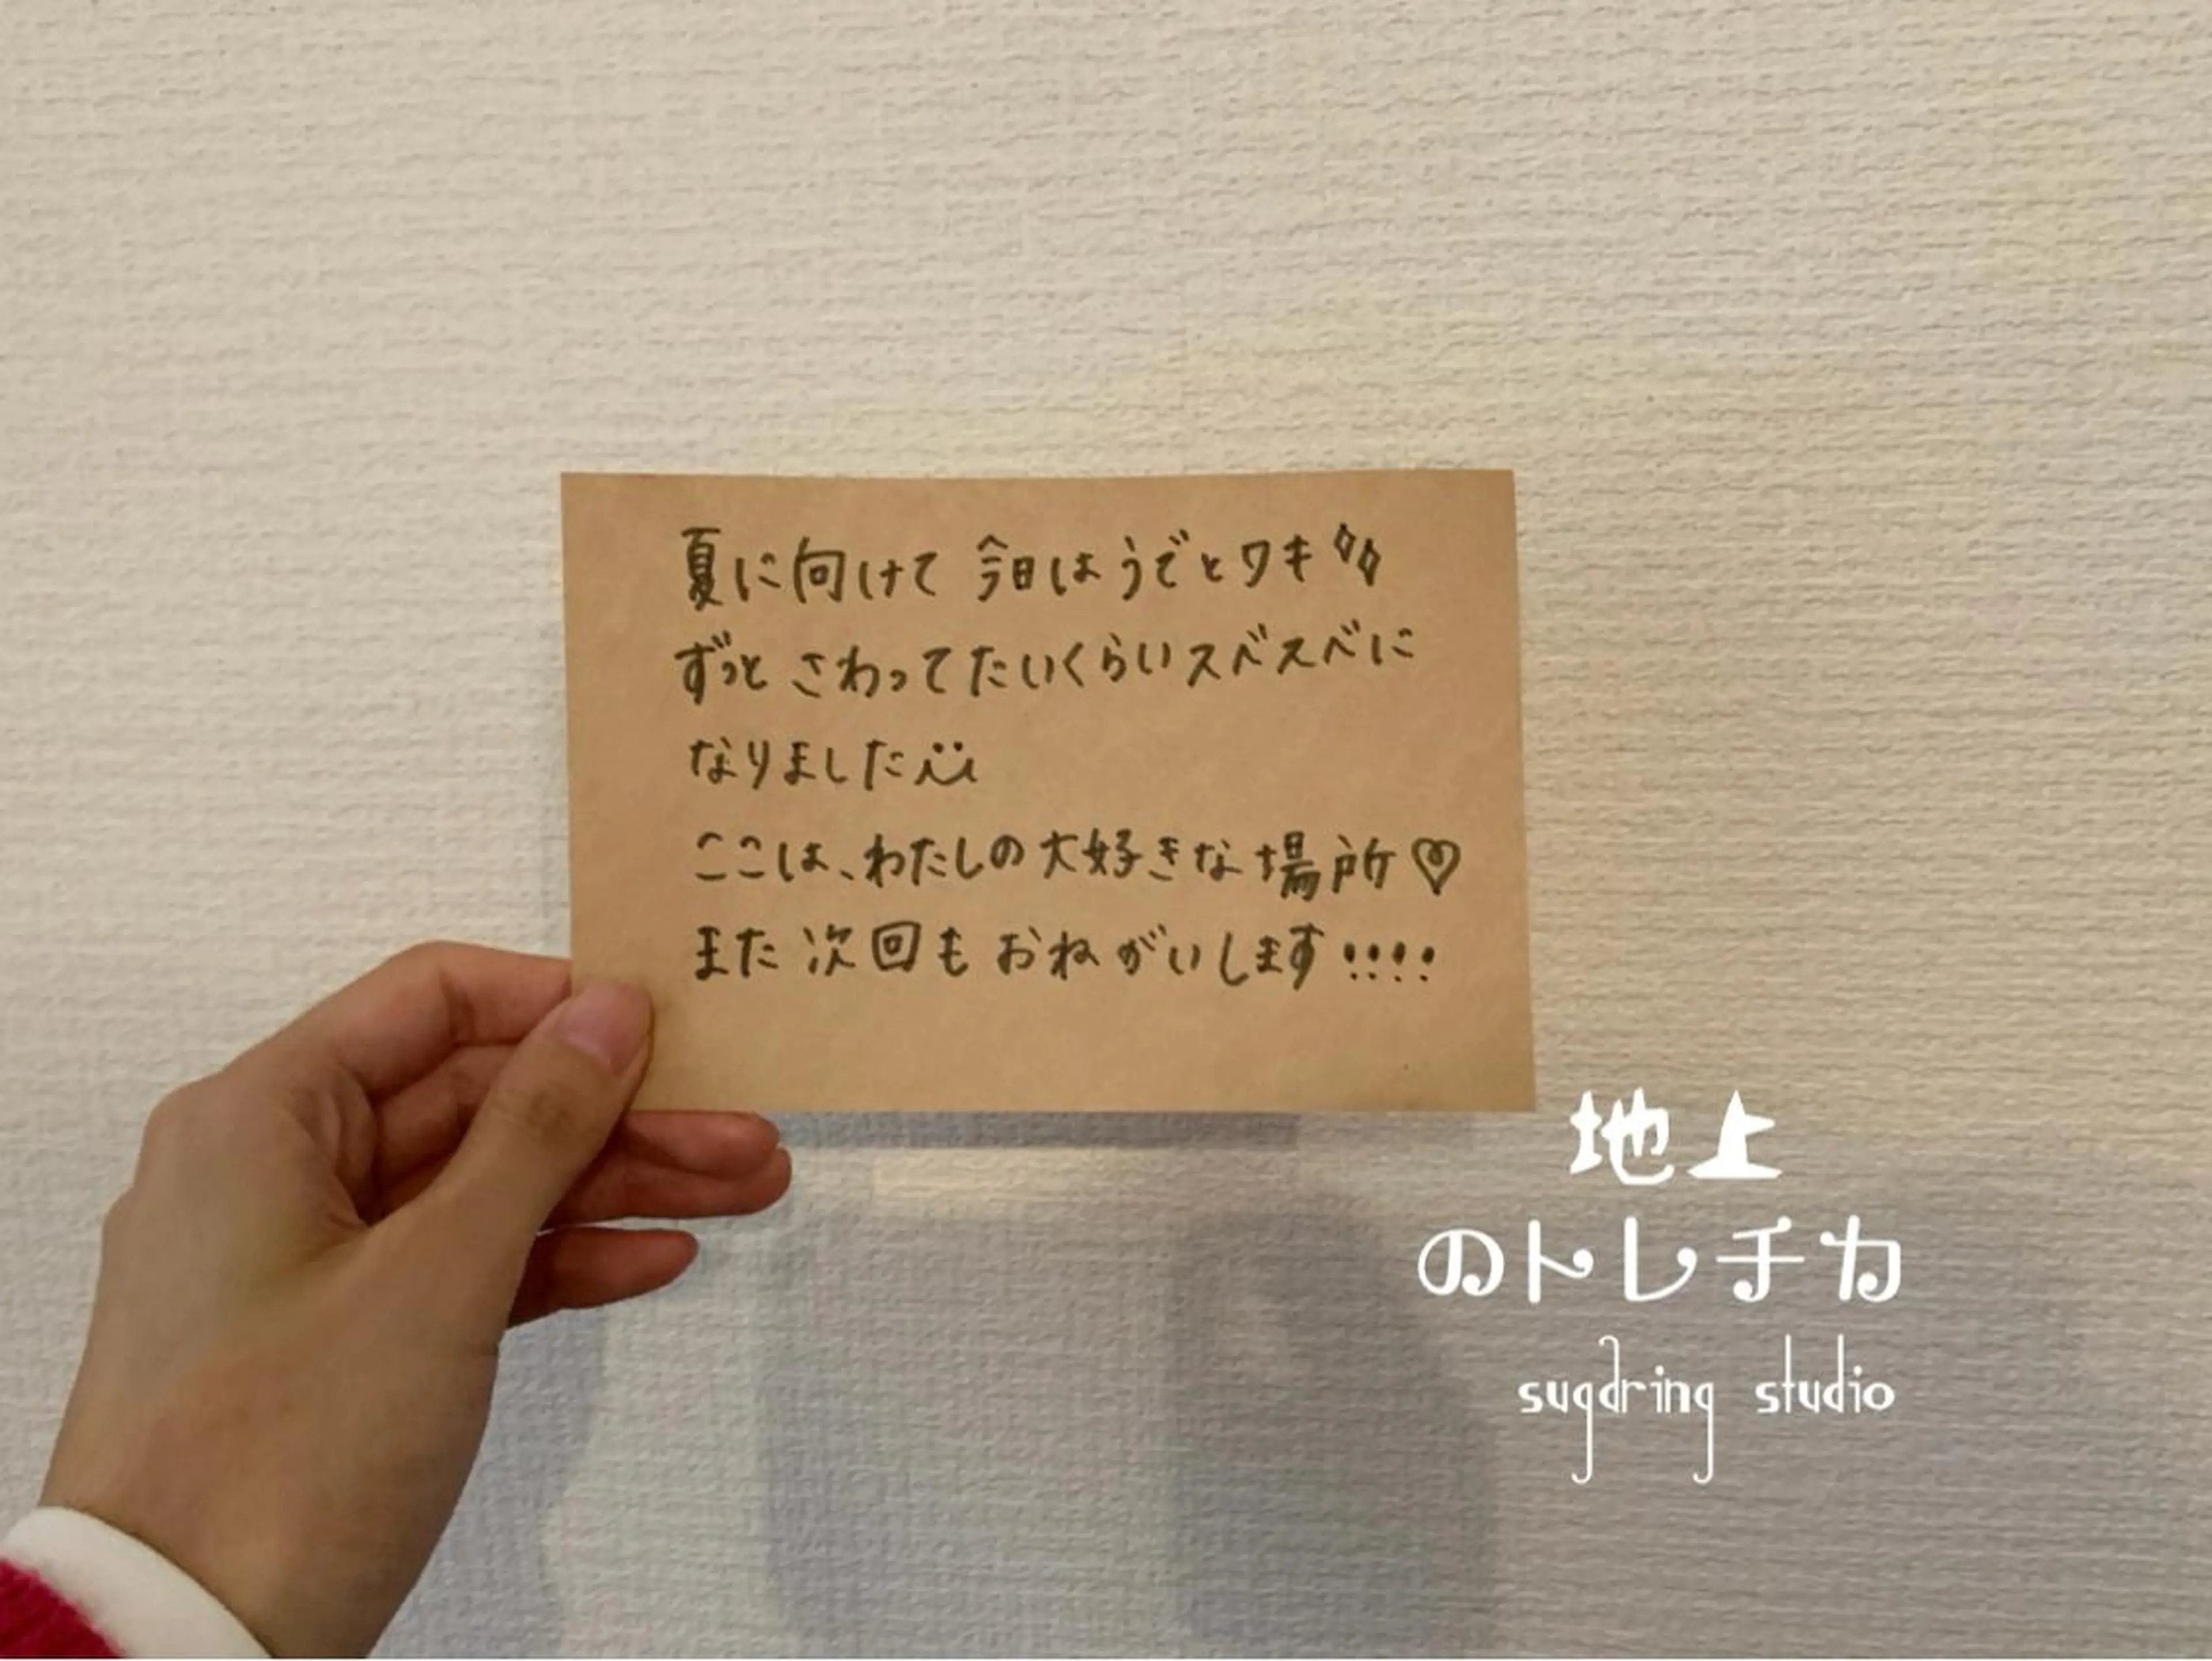 夏に向けて 今日はうでとワキ
ずっと さわってたいくらいスベスベに
なりました
ここは、わたしの大好きな場所♡
また次回もおねがいします!!!!
地上
のトレチカ
sugdring studio